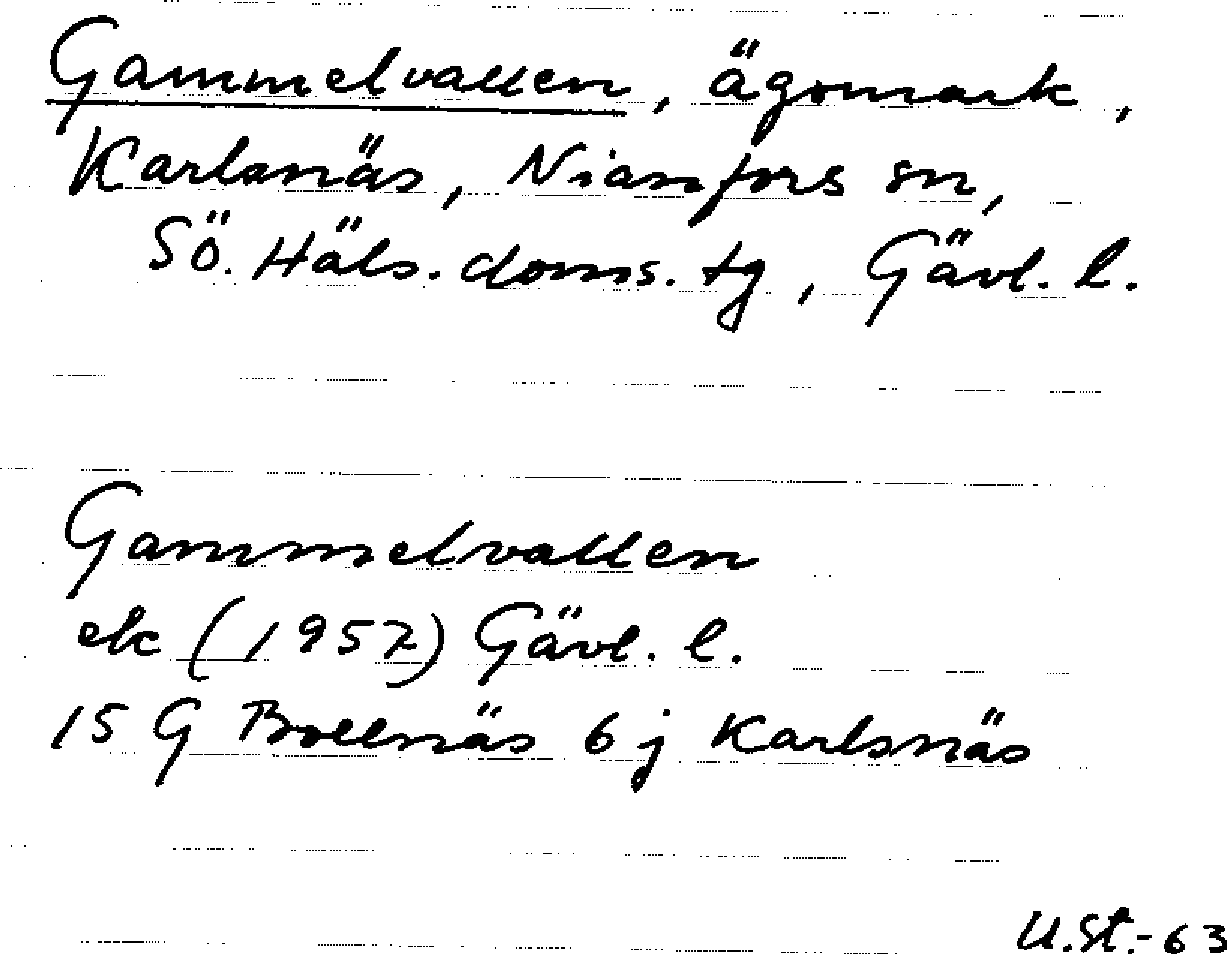 Gammelvallen, ägomark,
Karlsnäs, Nianfors sn,
Sö. Häls. doms. tg, Gävl. l.
Gammelvallen
ek (1957) Gävl. l.
15 G Bollnäs 6 j Karlsnäs
U.St.-63